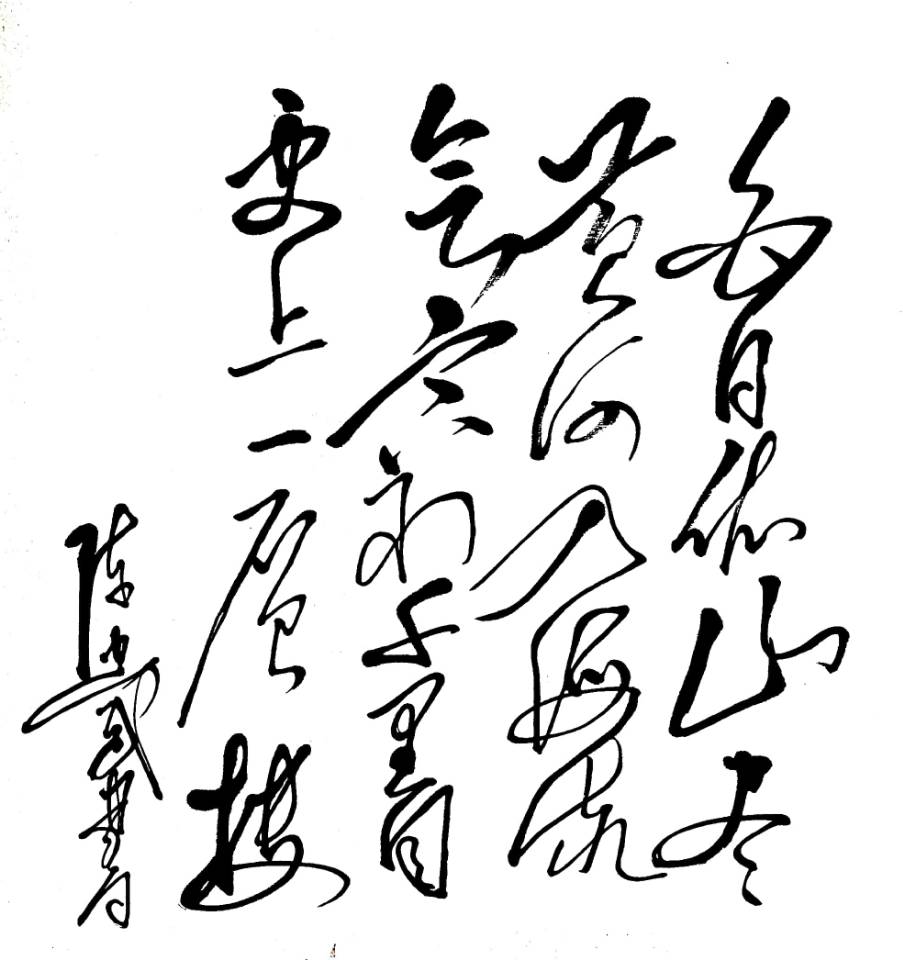 白日依山尽
黄河入海流
欲穷千里目
更上一層楼
陈